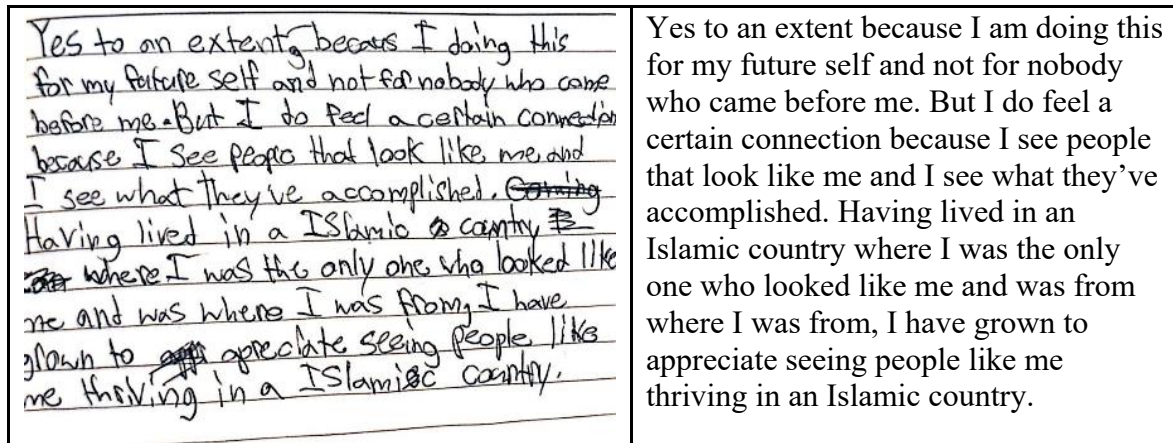 Yes to an extent, becaus I doing this
for my future self and not for nobody who came
before me. But I do feel a certain connection
because I see people that look like me and
I see what they've accomplished. Coming
Having lived in a ISlamic country
where I was the only one who looked like
me and was where I was from, I have
grown to apreciate seeing people like
me thriving in a ISlamic country.
Yes to an extent because I am doing this
for my future self and not for nobody
who came before me. But I do feel a
certain connection because I see people
that look like me and I see what they’ve
accomplished. Having lived in an
Islamic country where I was the only
one who looked like me and was from
where I was from, I have grown to
appreciate seeing people like me
thriving in an Islamic country.